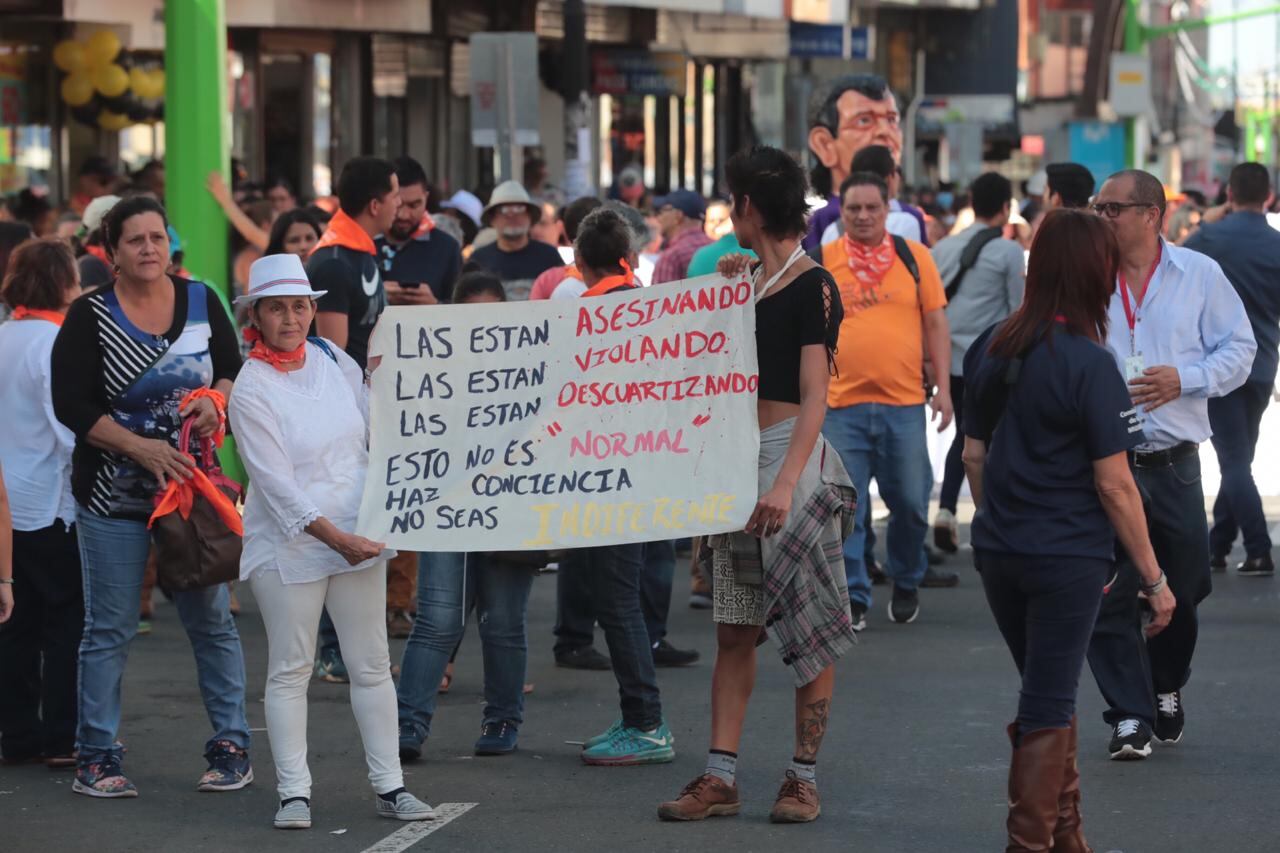 LAS ESTAN ASESINANDO
LAS ESTAN VIOLANDO.
LAS ESTAN DESCUARTIZANDO
ESTO NO ES "NORMAL"
HAZ CONCIENCIA
NO SEAS INDIFERENTE